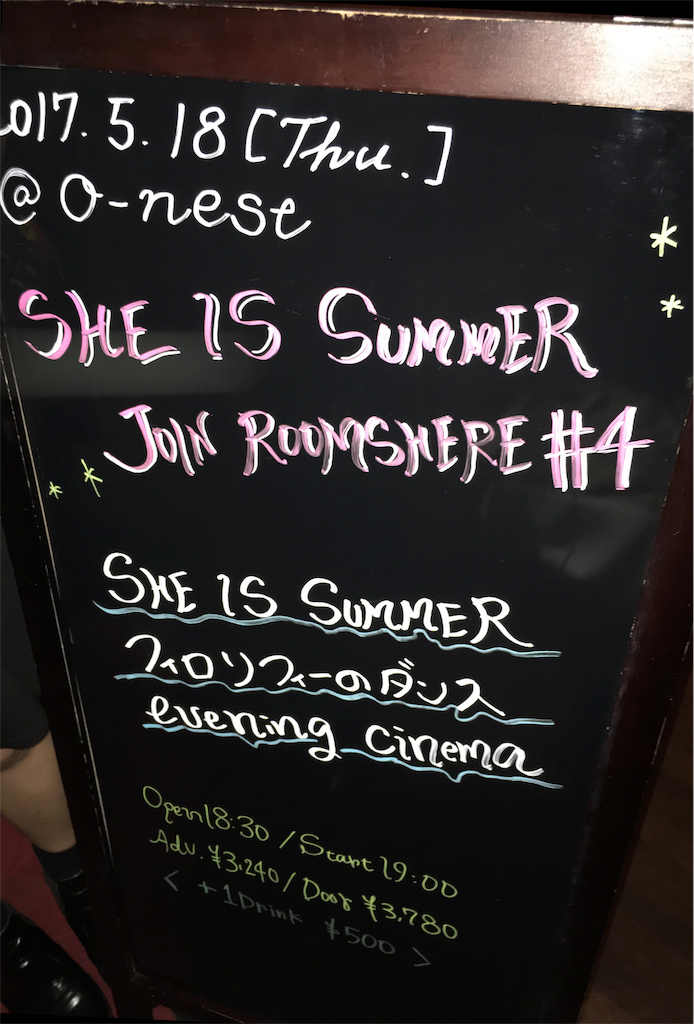 2017.5.18 [Thu.]
@ O-nest
SHE IS SUMMER
JOIN ROOMSHERE #4
SHE IS SUMMER
フィロソフィーのダンス
evening cinema
Open 18:30 / Start 19:00
Adv. ¥3,240 / Door ¥3,780
< +1Drink ¥500 >